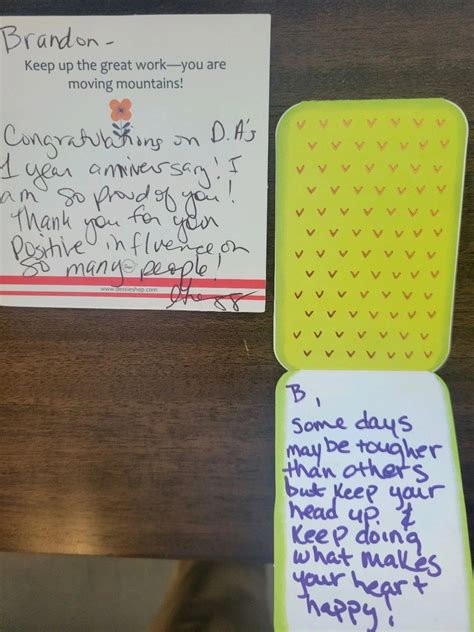 Brandon-
Keep up the great work—you are
moving mountains!
Congratulations on D.A's
1 year anniversary! I
am so proud of you!
Thank you for your
Positive influence on
so many people!
www.dessieshop.com
B,
some days
may be tougher
than others
but keep your
head up &
keep doing
what makes
your heart
happy!